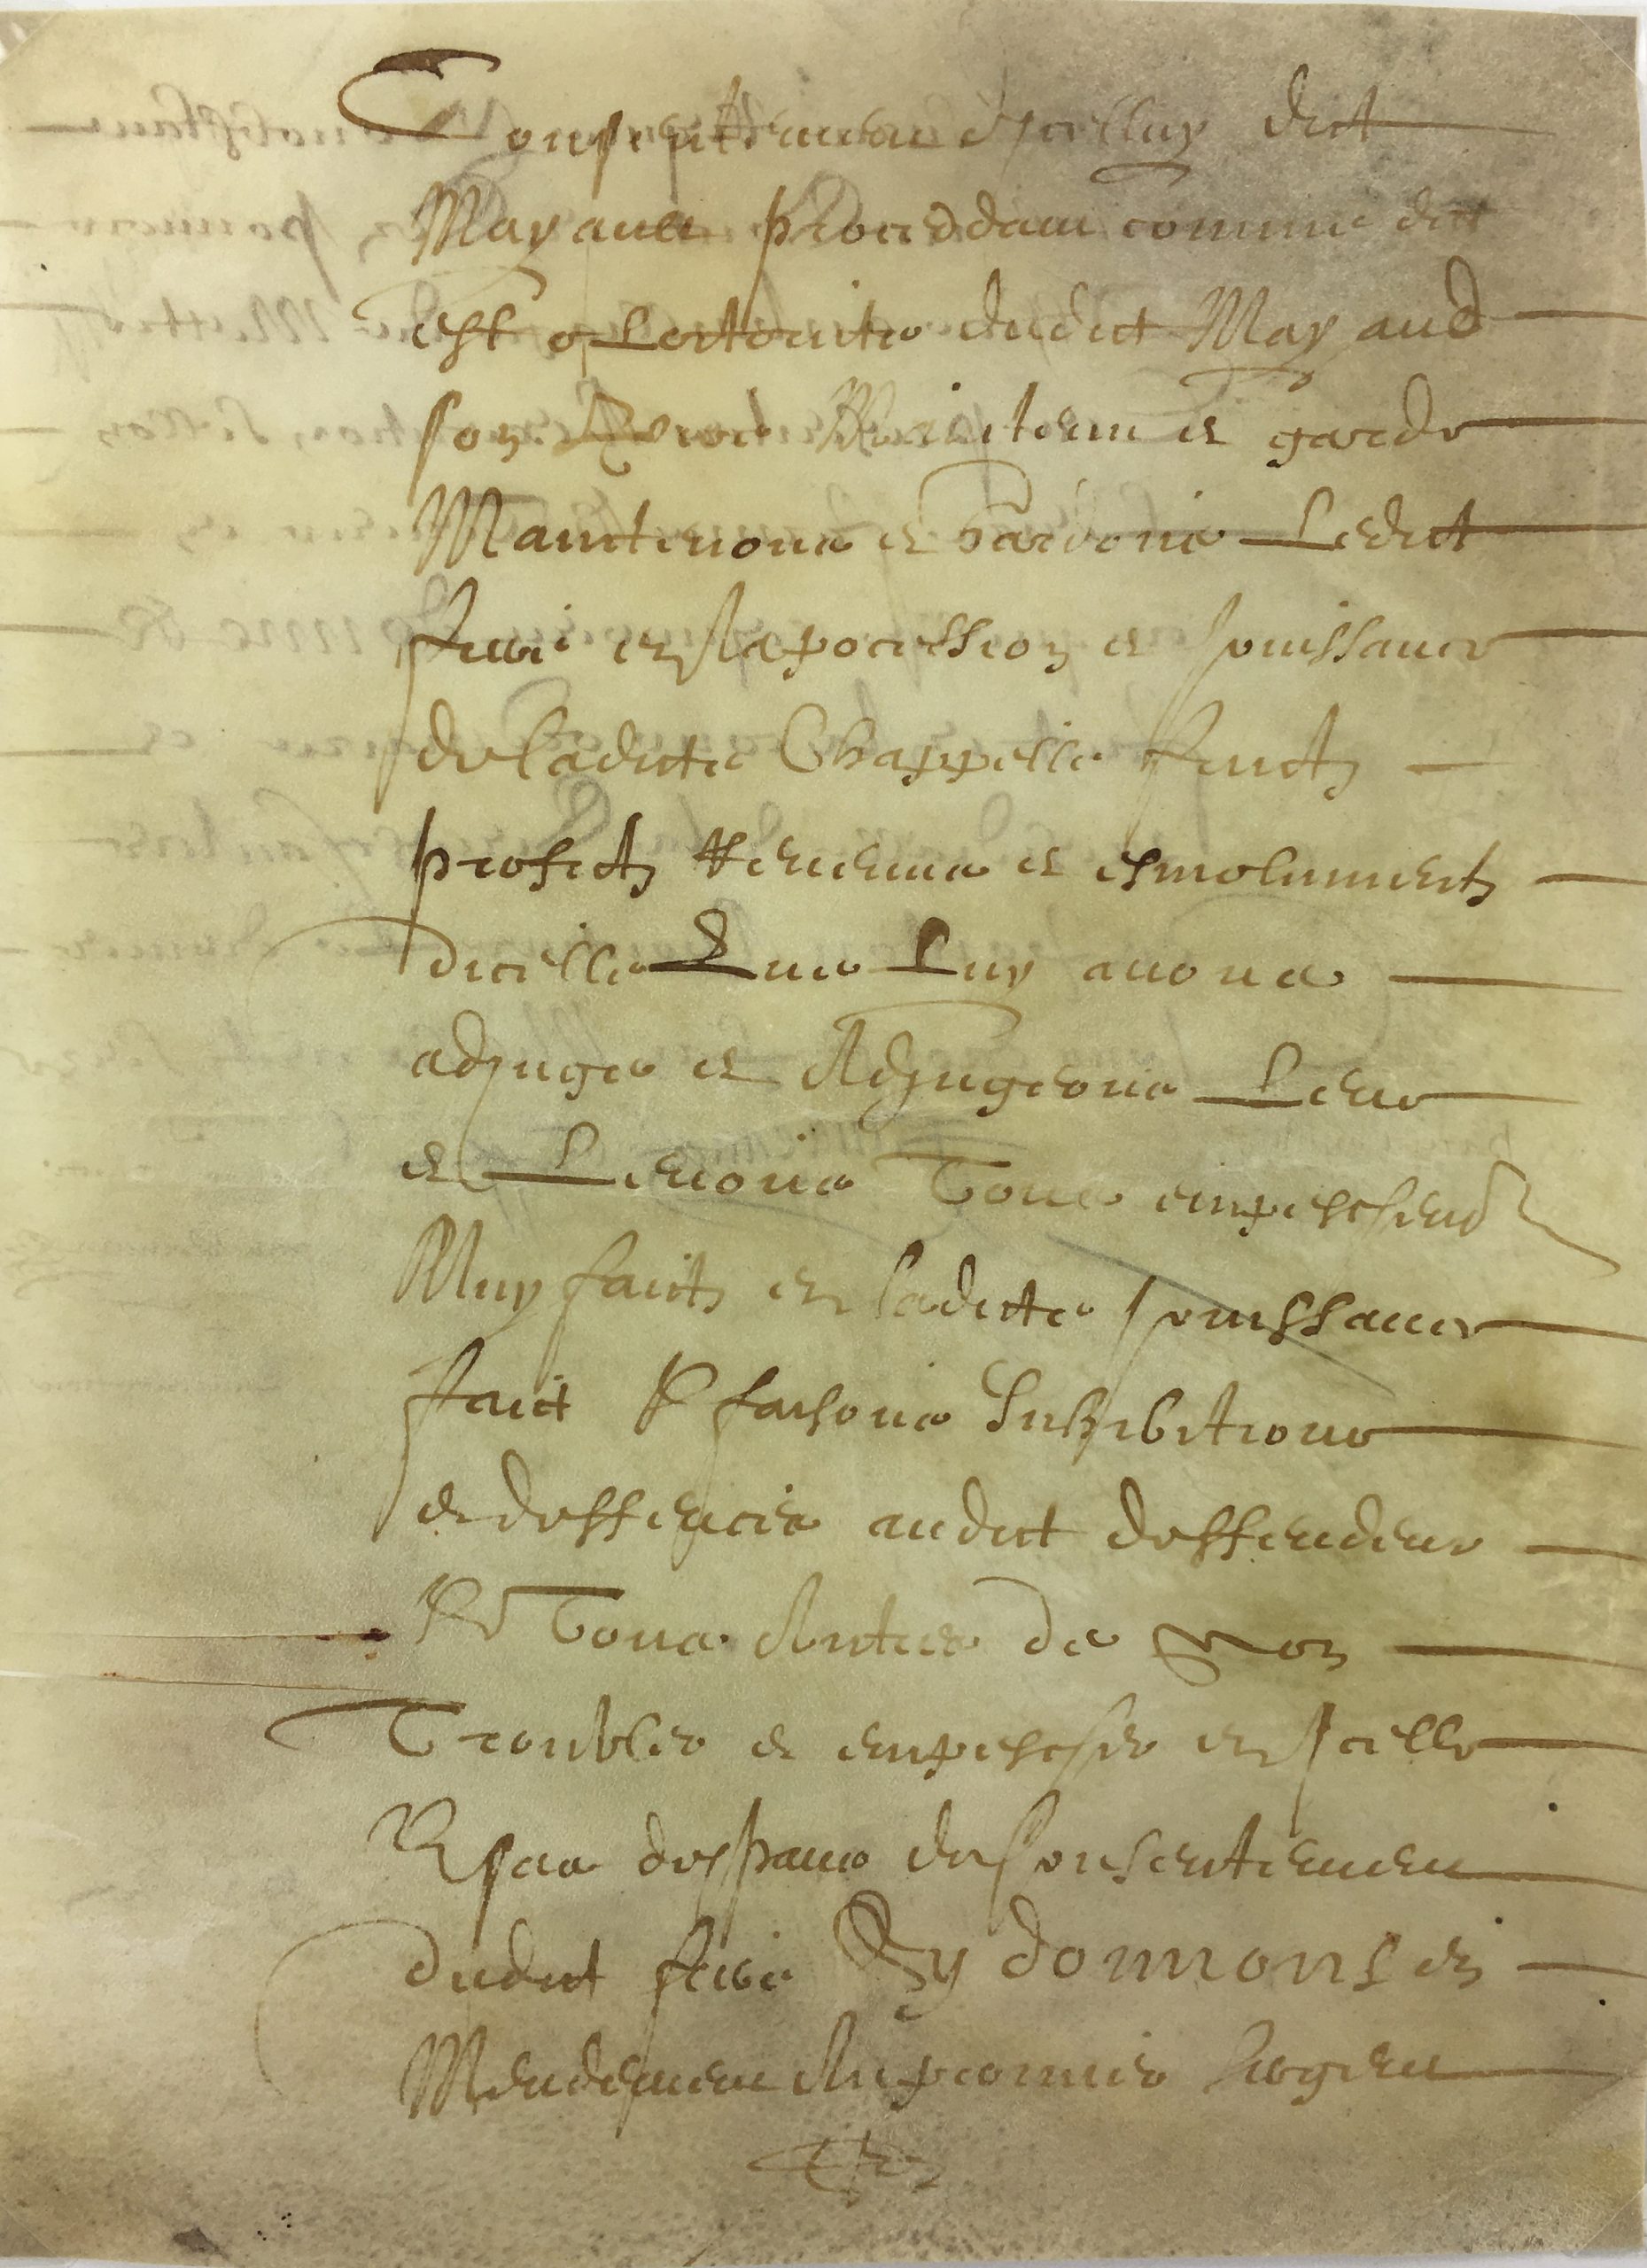 Consentemant d'Icelluy dict
Mayaud proceddant comme dict
est o Lectorite dudict Mayaud
son Maintenu et garde
Maintenons et Gardons Ledict
en la pocession et Jouissance
de ladicte Chappelle fruictz
profictz Revenus et esmolumentz
dicelle Que Luy avons
adjuge et Adjugeons Leve
et Levons Tous empeschementz
Muy faictz en ladicte Jouissance
faict Et faisons Inhibitions
et deffences audict deffendeur
Et Tous Autres de Non
Troubler et empescher en Icelle
despans du Consentement
dudict Sy donnons en
Mendement Au premier Sergent